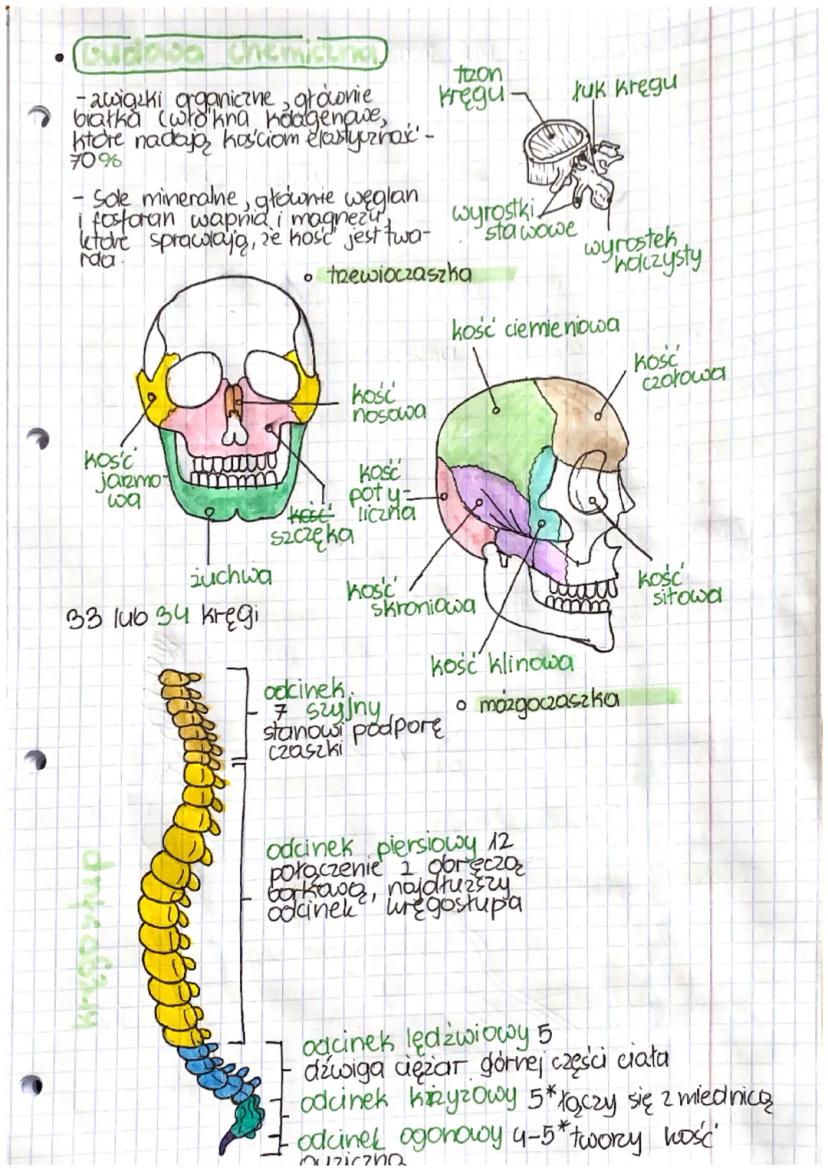 budowa chemiczna
- związki organiczne, głównie
białka (włókna kolagenowe,
które nadają kościom elastyczność -
70%
- Sole mineralne, głównie węglan
i fosforan wapnia i magnezu,
które sprawiają, że kość jest twa-
rda.
trzon
kręgu
łuk kręgu
wyrostki
stawowe
wyrostek
kolczysty
trzewioczaszka
kość
nosowa
kość
jarzmo-
wa
kość
szczęka
żuchwa
kość ciemieniowa
kość
czołowa
kość
poty-
liczna
kość
skroniowa
kość
sitowa
kość klinowa
mózgoczaszka
33 lub 34 kręgi
kręgosłup
odcinek
7 szyjny
stanowi podporę
czaszki
odcinek piersiowy 12
połączenie z obręczą
barkową, najdłuższy
odcinek kręgosłupa
odcinek lędźwiowy 5
dźwiga ciężar górnej części ciała
odcinek krzyżowy 5*łączy się z miednicą
odcinek ogonowy 4-5*tworzy kość
guziczną